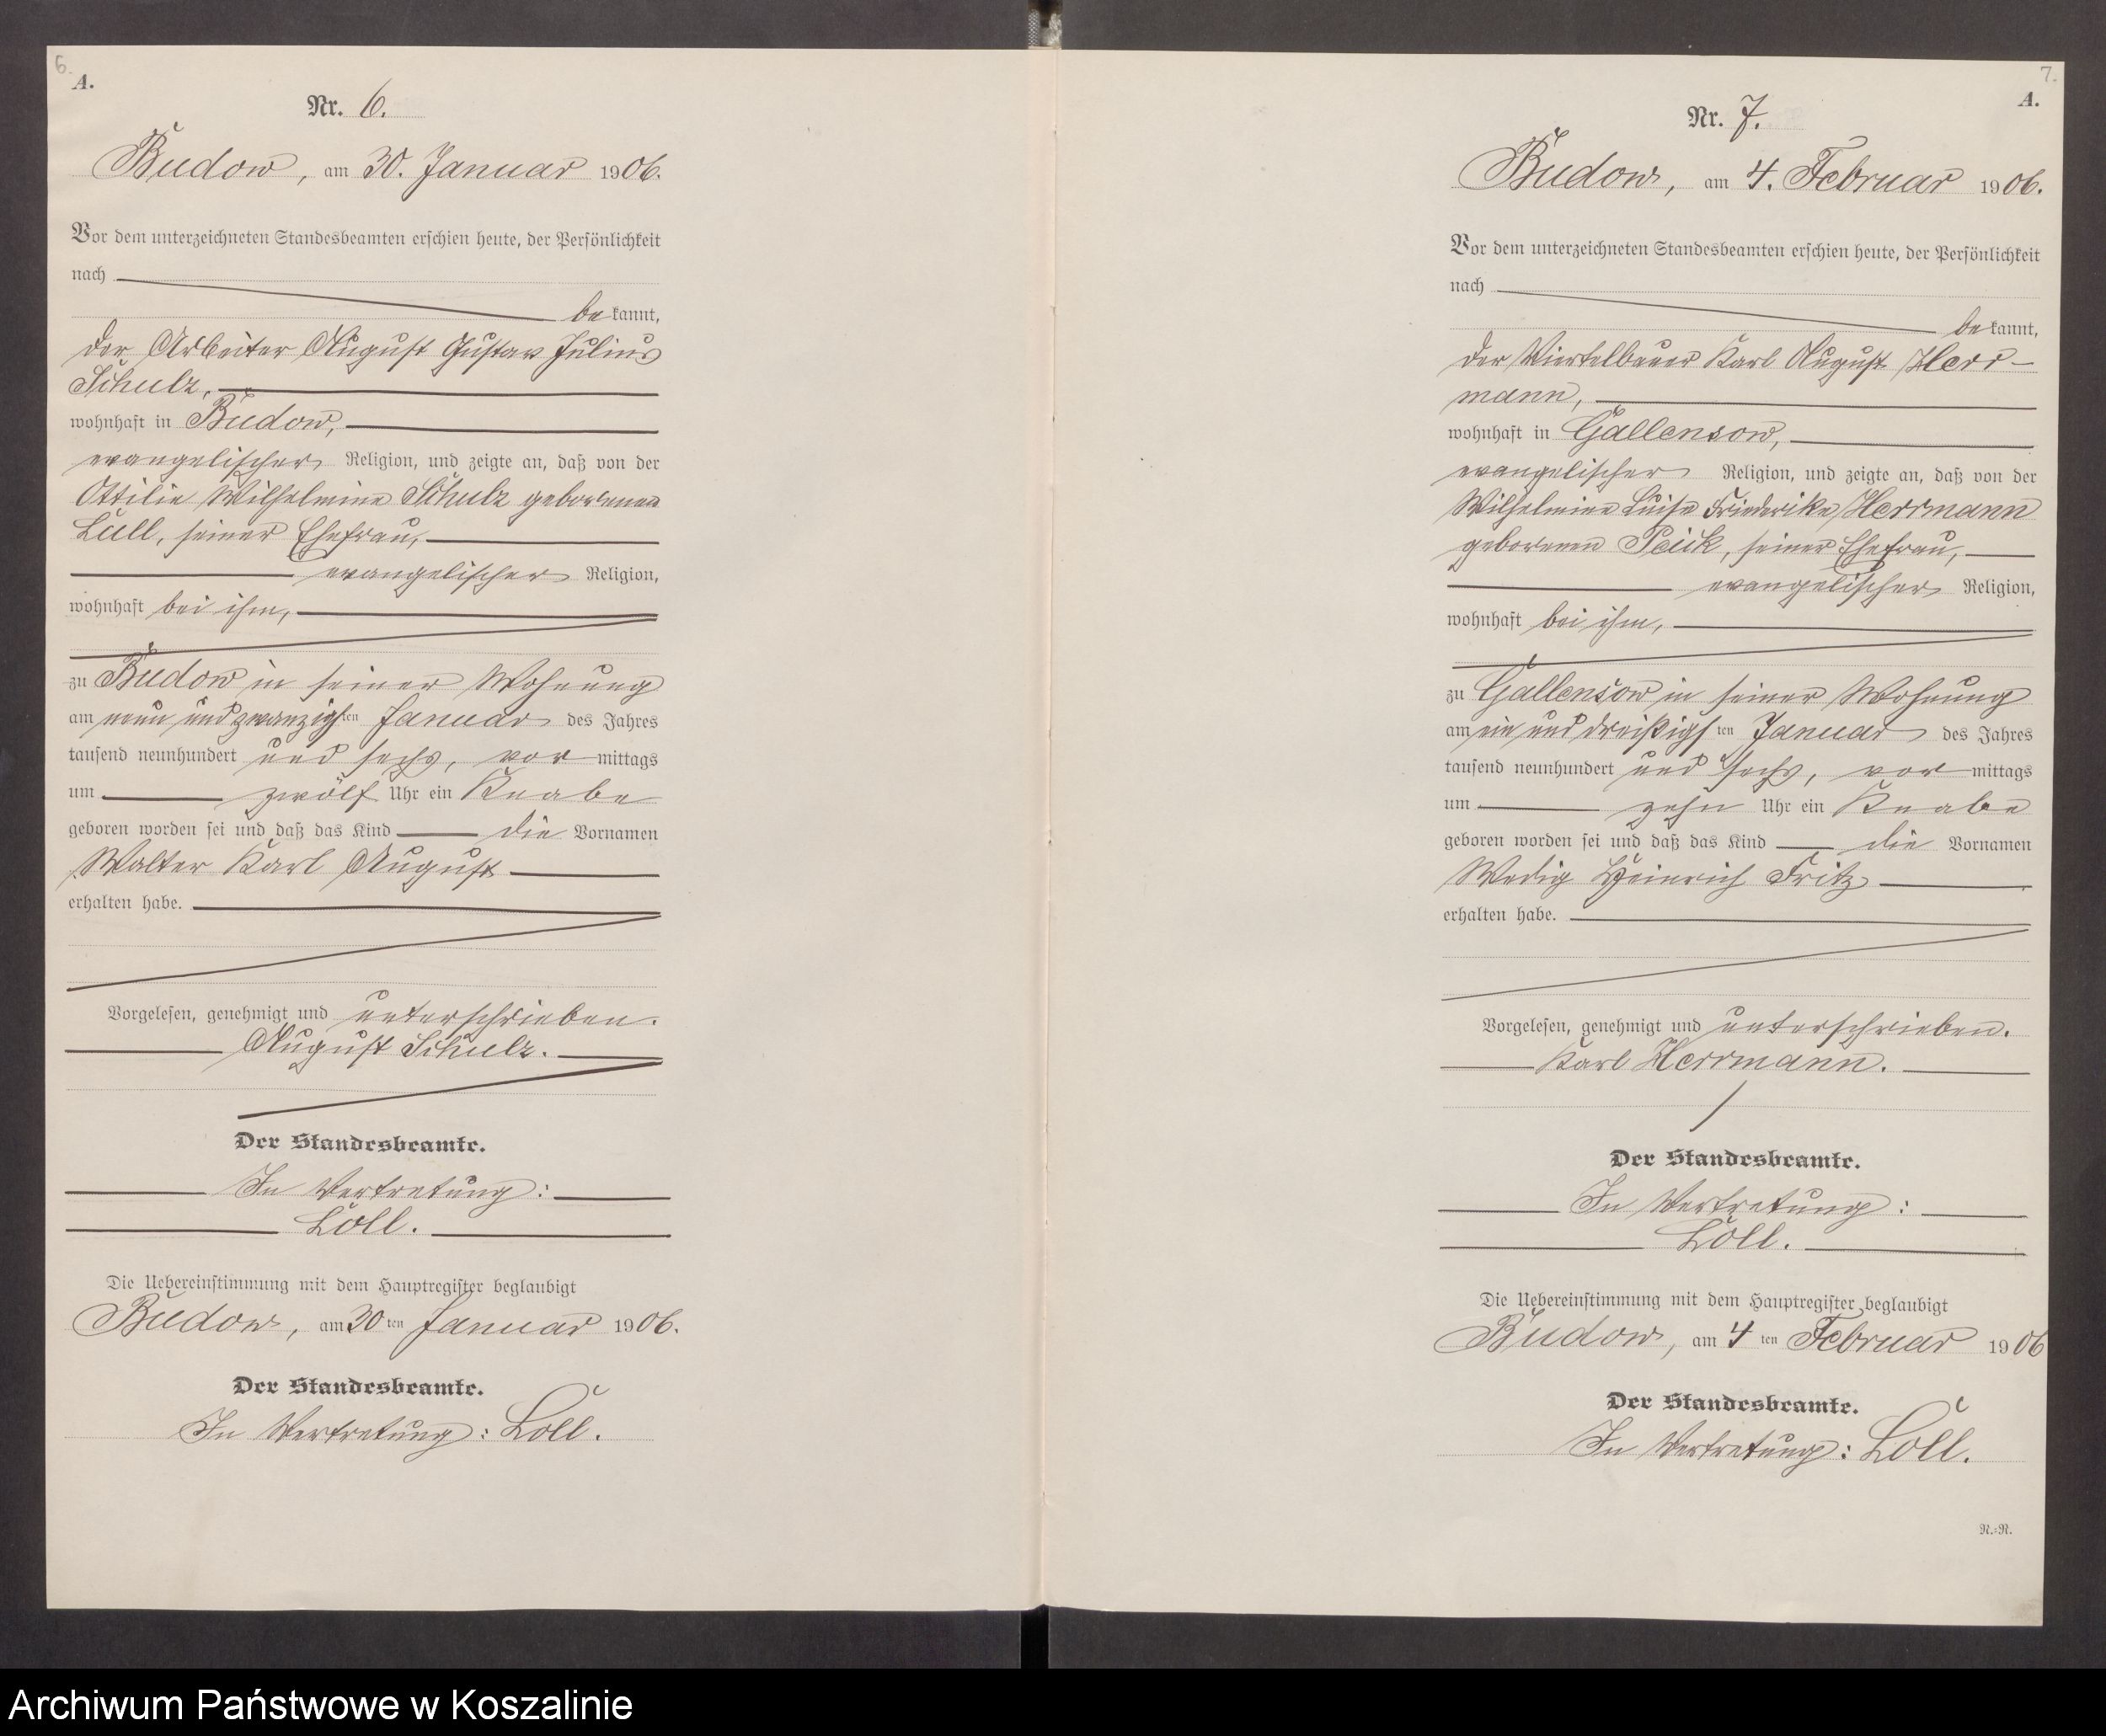 6.
A.
Nr. 6.
Budow, am 30. Januar 1906.
Vor dem unterzeichneten Standesbeamten erschien heute, der Persönlichkeit
nach
bekannt,
der Arbeiter August Gustav Julius
Schulz,
wohnhaft in Budow,
evangelischer Religion, und zeigte an, daß von der
Ottilie Wilhelmine Schulz geborenen
Lull, seiner Ehefrau,
evangelischer Religion,
wohnhaft bei ihm,
zu Budow in seiner Wohnung
am neun und zwanzigsten Januar des Jahres
tausend neunhundert und sechs, vormittags
um zwölf Uhr ein Knabe
geboren worden sei und daß das Kind die Vornamen
Walter Karl August
erhalten habe.
Vorgelesen, genehmigt und unterschrieben.
August Schulz.
Der Standesbeamte.
In Vertretung:
Löll.
Die Uebereinstimmung mit dem Hauptregister beglaubigt
Budow, am 30ten Januar 1906.
Der Standesbeamte.
In Vertretung: Löll.
7.
A.
Nr. 7.
Budow, am 4. Februar 1906.
Vor dem unterzeichneten Standesbeamten erschien heute, der Persönlichkeit
nach
bekannt,
der Viertelbauer Karl August Herr-
mann,
wohnhaft in Gallensow,
evangelischer Religion, und zeigte an, daß von der
Wilhelmine Luise Friederike Herrmann
geborenen Peick, seiner Ehefrau,
evangelischer Religion,
wohnhaft bei ihm,
zu Gallensow in seiner Wohnung
am ein und dreißigsten Januar des Jahres
tausend neunhundert und sechs, vormittags
um zehn Uhr ein Knabe
geboren worden sei und daß das Kind die Vornamen
Wedig Heinrich Fritz
erhalten habe.
Vorgelesen, genehmigt und unterschrieben.
Karl Herrmann.
Der Standesbeamte.
In Vertretung:
Löll.
Die Uebereinstimmung mit dem Hauptregister beglaubigt
Budow, am 4ten Februar 1906
Der Standesbeamte.
In Vertretung: Löll.
R.=R.
Archiwum Państwowe w Koszalinie